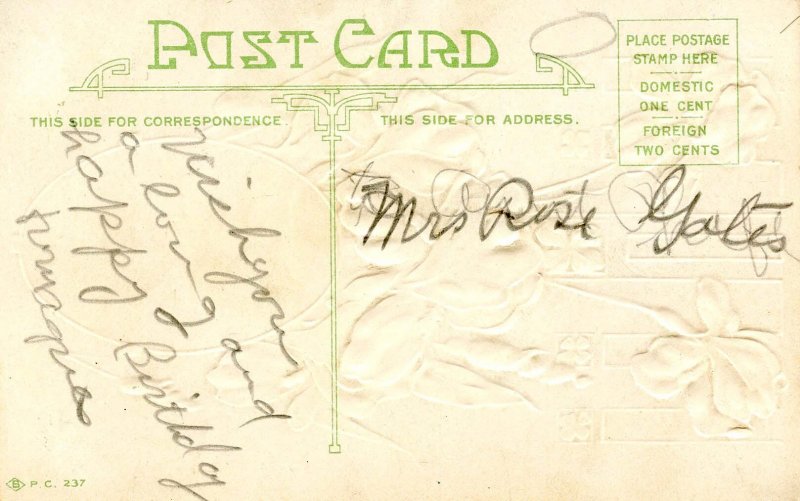 POST CARD
THIS SIDE FOR CORRESPONDENCE.
THIS SIDE FOR ADDRESS.
PLACE POSTAGE
STAMP HERE
DOMESTIC
ONE CENT
FOREIGN
TWO CENTS
wish you
a long and
happy Birthday
from
Mrs Rose Gates
B P. C. 237